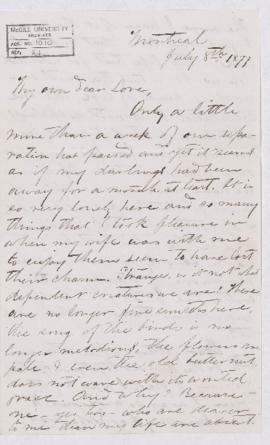 McGILL UNIVERSITY
ARCHIVES
ACC. NO. 1010
REF.
Montreal
July 8th 1877
My own dear Love,
Only a little
more than a week of our sepa-
ration has passed and yet it seems
as if my darlings had been
away for a month at least. It is
so very lonely here and so many
things that I took pleasure in
when my wife was with me
to enjoy them seem to have lost
their charm. Strange, is it not what
dependent creatures we are! There
are no longer fine sunsets here,
the song of the birds is no
longer melodious, the flowers are
pale & even the old butternut
does not wave with its wonted
grace. And why? Because
one - yes two - who are dearer
to me than my life are absent